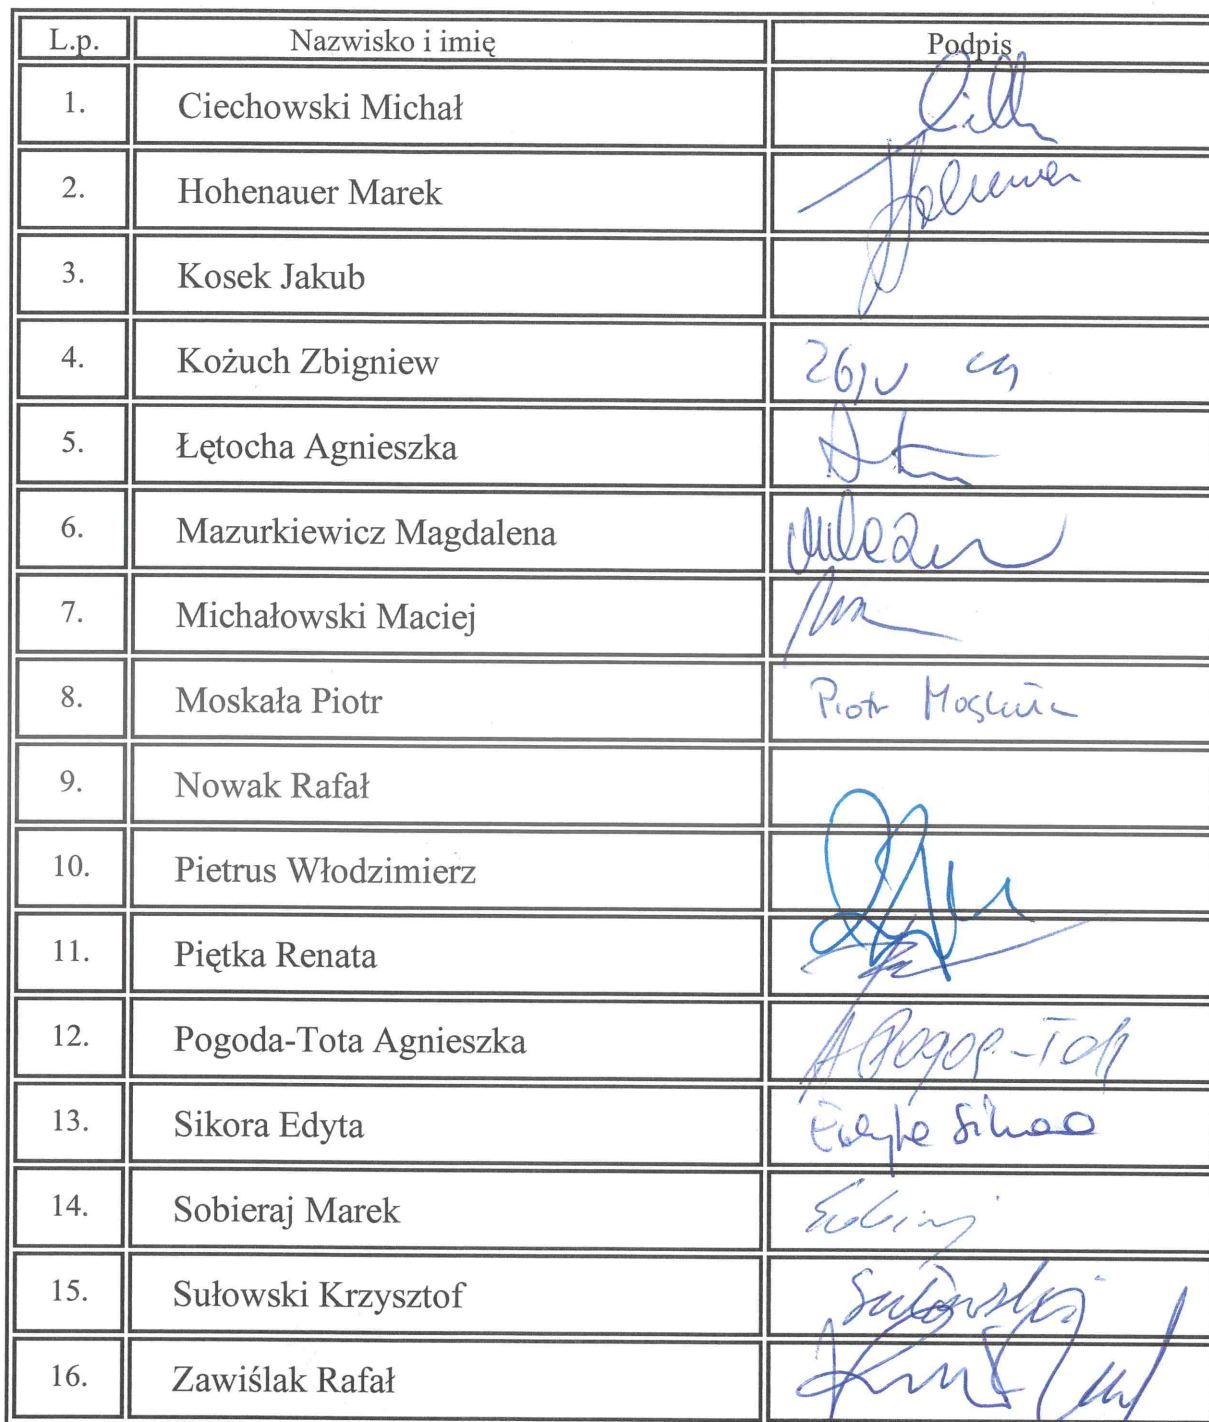 L.p. Nazwisko i imię Podpis
1. Ciechowski Michał
2. Hohenauer Marek
3. Kosek Jakub
4. Kożuch Zbigniew
5. Łętocha Agnieszka
6. Mazurkiewicz Magdalena
7. Michałowski Maciej
8. Moskała Piotr Piotr Moskała
9. Nowak Rafał
10. Pietrus Włodzimierz
11. Piętka Renata
12. Pogoda-Tota Agnieszka
13. Sikora Edyta Edyta Sikora
14. Sobieraj Marek
15. Sułowski Krzysztof Sułowski
16. Zawiślak Rafał